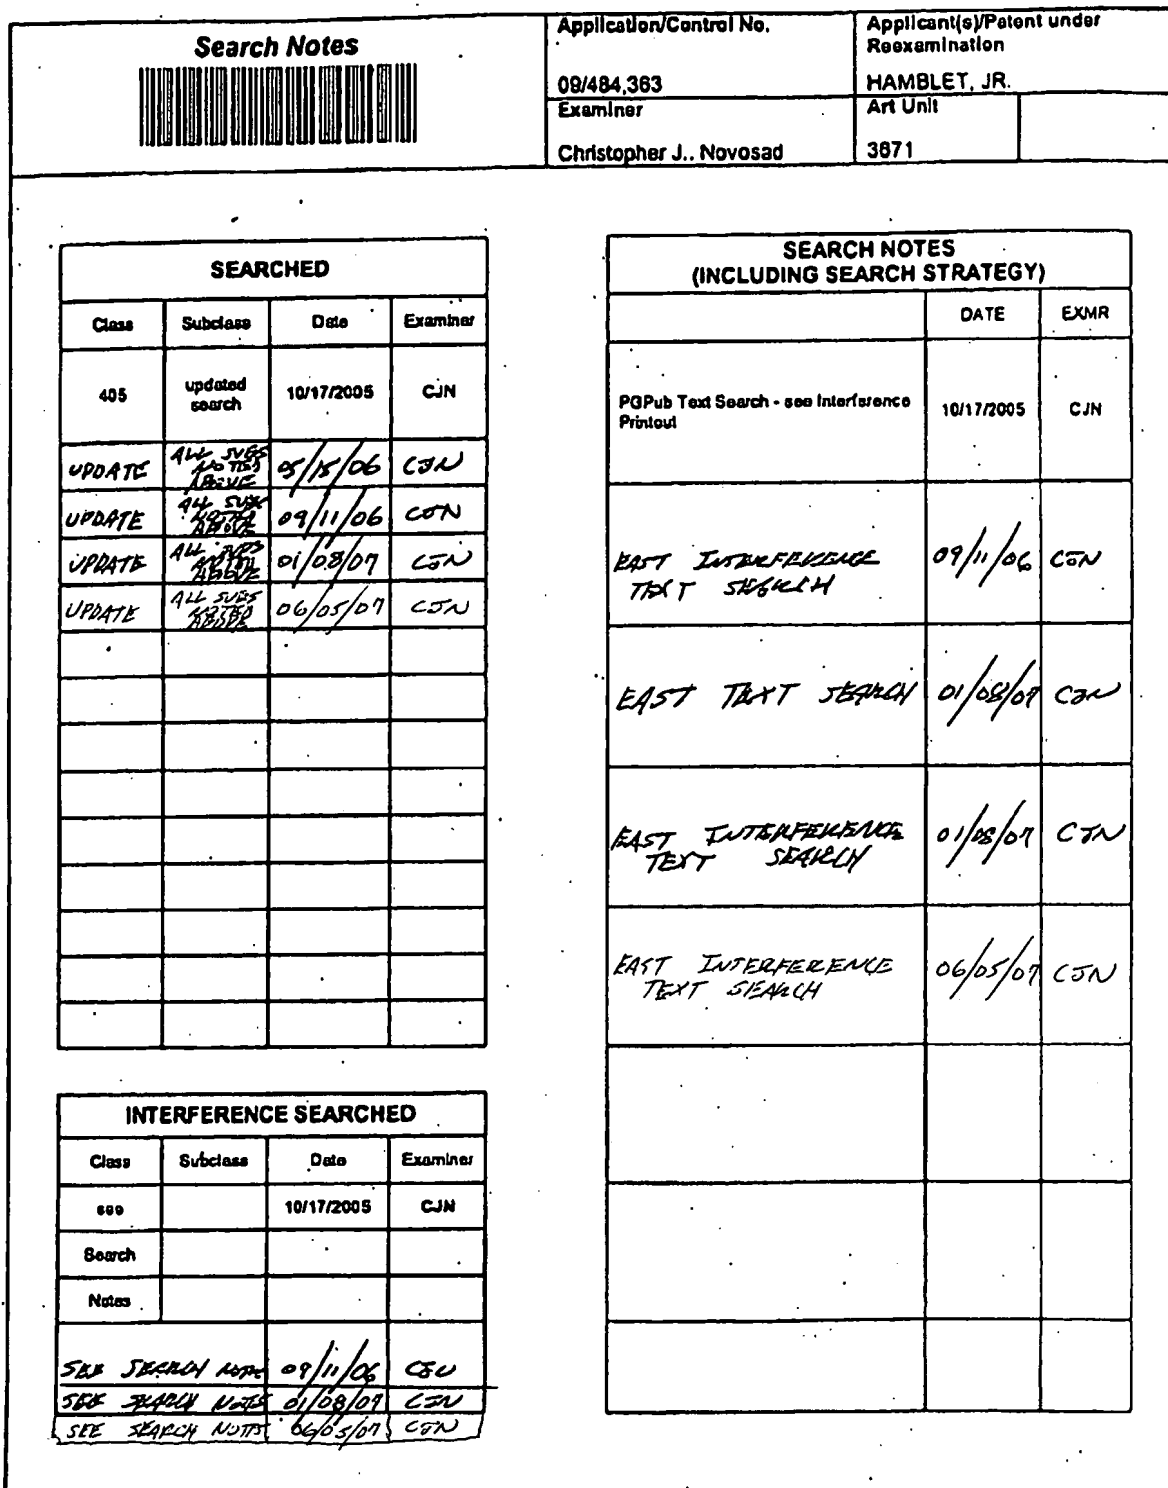 Search Notes
Application/Control No.
09/484,363
Applicant(s)/Patent under
Reexamination
HAMBLET, JR.
Examiner
Christopher J.. Novosad
Art Unit
3671
SEARCHED
Class Subclass Date Examiner
405 updated search 10/17/2005 CJN
UPDATE ALL SUBS NOTED ABOVE 05/15/06 CJN
UPDATE ALL SUBS NOTED ABOVE 09/11/06 CJN
UPDATE ALL SUBS NOTED ABOVE 01/08/07 CJN
UPDATE ALL SUBS NOTED ABOVE 06/05/07 CJN
INTERFERENCE SEARCHED
Class Subclass Date Examiner
see 10/17/2005 CJN
Search
Notes
SEE SEARCH NOTES 09/11/06 CJN
SEE SEARCH NOTES 01/08/07 CJN
SEE SEARCH NOTES 06/05/07 CJN
SEARCH NOTES
(INCLUDING SEARCH STRATEGY)
DATE EXMR
PGPub Text Search - see Interference
Printout 10/17/2005 CJN
EAST INTERFERENCE
TEXT SEARCH 09/11/06 CJN
EAST TEXT SEARCH 01/08/07 CJN
EAST INTERFERENCE
TEXT SEARCH 01/08/07 CJN
EAST INTERFERENCE
TEXT SEARCH 06/05/07 CJN